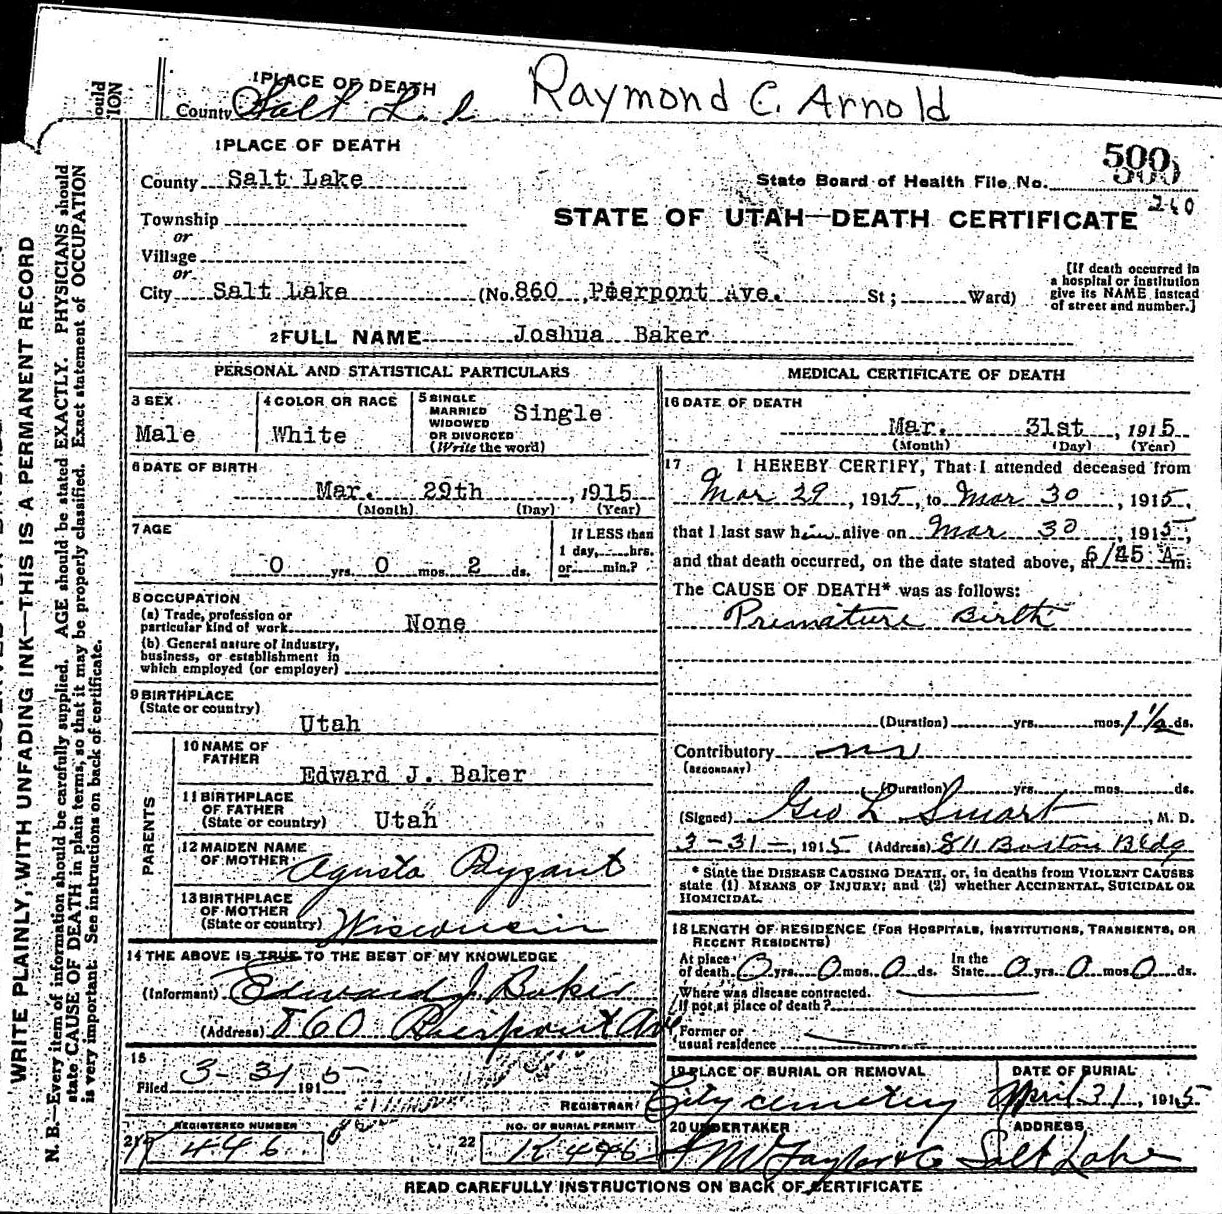 1 PLACE OF DEATH
County Salt L
Raymond C. Arnold
1 PLACE OF DEATH
County Salt Lake
500
State Board of Health File No.
260
Township
STATE OF UTAH—DEATH CERTIFICATE
or
Village
or
City Salt Lake (No. 860 Pierpont Ave. St; Ward)
[If death occurred in
a hospital or institution
give its NAME instead
of street and number.]
2 FULL NAME Joshua Baker
PERSONAL AND STATISTICAL PARTICULARS
3 SEX
Male
4 COLOR OR RACE
White
5 SINGLE
MARRIED
WIDOWED
OR DIVORCED
(Write the word)
Single
6 DATE OF BIRTH
Mar. 29th, 1915
(Month) (Day) (Year)
7 AGE
0 yrs. 0 mos. 2 ds.
If LESS than
1 day, hrs.
or min.?
8 OCCUPATION
(a) Trade, profession or
particular kind of work None
(b) General nature of industry,
business, or establishment in
which employed (or employer)
9 BIRTHPLACE
(State or country)
Utah
PARENTS
10 NAME OF
FATHER
Edward J. Baker
11 BIRTHPLACE
OF FATHER
(State or country) Utah
12 MAIDEN NAME
OF MOTHER Agusta
13 BIRTHPLACE
OF MOTHER
(State or country) Wisconsin
14 THE ABOVE IS TRUE TO THE BEST OF MY KNOWLEDGE
(Informant) Edward J. Baker
(Address) 860 Pierpont Ave
15
Filed 3-31 1915
REGISTRAR
REGISTERED NUMBER
21 446
NO. OF BURIAL PERMIT
22
MEDICAL CERTIFICATE OF DEATH
16 DATE OF DEATH
Mar. 31st, 1915
(Month) (Day) (Year)
17 I HEREBY CERTIFY, That I attended deceased from
Mar 29, 1915, to Mar 30, 1915,
that I last saw him alive on Mar 30, 1915,
and that death occurred, on the date stated above, at 6/45 A m.
The CAUSE OF DEATH* was as follows:
Premature Birth
(Duration) yrs. mos. 1½ ds.
Contributory
(SECONDARY)
(Duration) yrs. mos. ds.
(Signed) Geo L Smart, M. D.
3-31-, 1915 (Address) 811 Boston Bldg
* State the DISEASE CAUSING DEATH, or, in deaths from VIOLENT CAUSES
state (1) MEANS OF INJURY; and (2) whether ACCIDENTAL, SUICIDAL OR
HOMICIDAL.
18 LENGTH OF RESIDENCE (FOR HOSPITALS, INSTITUTIONS, TRANSIENTS, OR
RECENT RESIDENTS)
At place
of death 0 yrs. 0 mos. 0 ds.
In the
State 0 yrs. 0 mos. 0 ds.
Where was disease contracted.
If not at place of death?
Former or
usual residence
19 PLACE OF BURIAL OR REMOVAL
City cemetery
DATE OF BURIAL
April 31, 1915
20 UNDERTAKER
Taylor & Co
ADDRESS
Salt Lake
READ CAREFULLY INSTRUCTIONS ON BACK OF CERTIFICATE
WRITE PLAINLY, WITH UNFADING INK—THIS IS A PERMANENT RECORD
N. B.—Every item of information should be carefully supplied. AGE should be stated EXACTLY. PHYSICIANS should
state CAUSE OF DEATH in plain terms, so that it may be properly classified. Exact statement of OCCUPATION
is very important. See instructions on back of certificate.